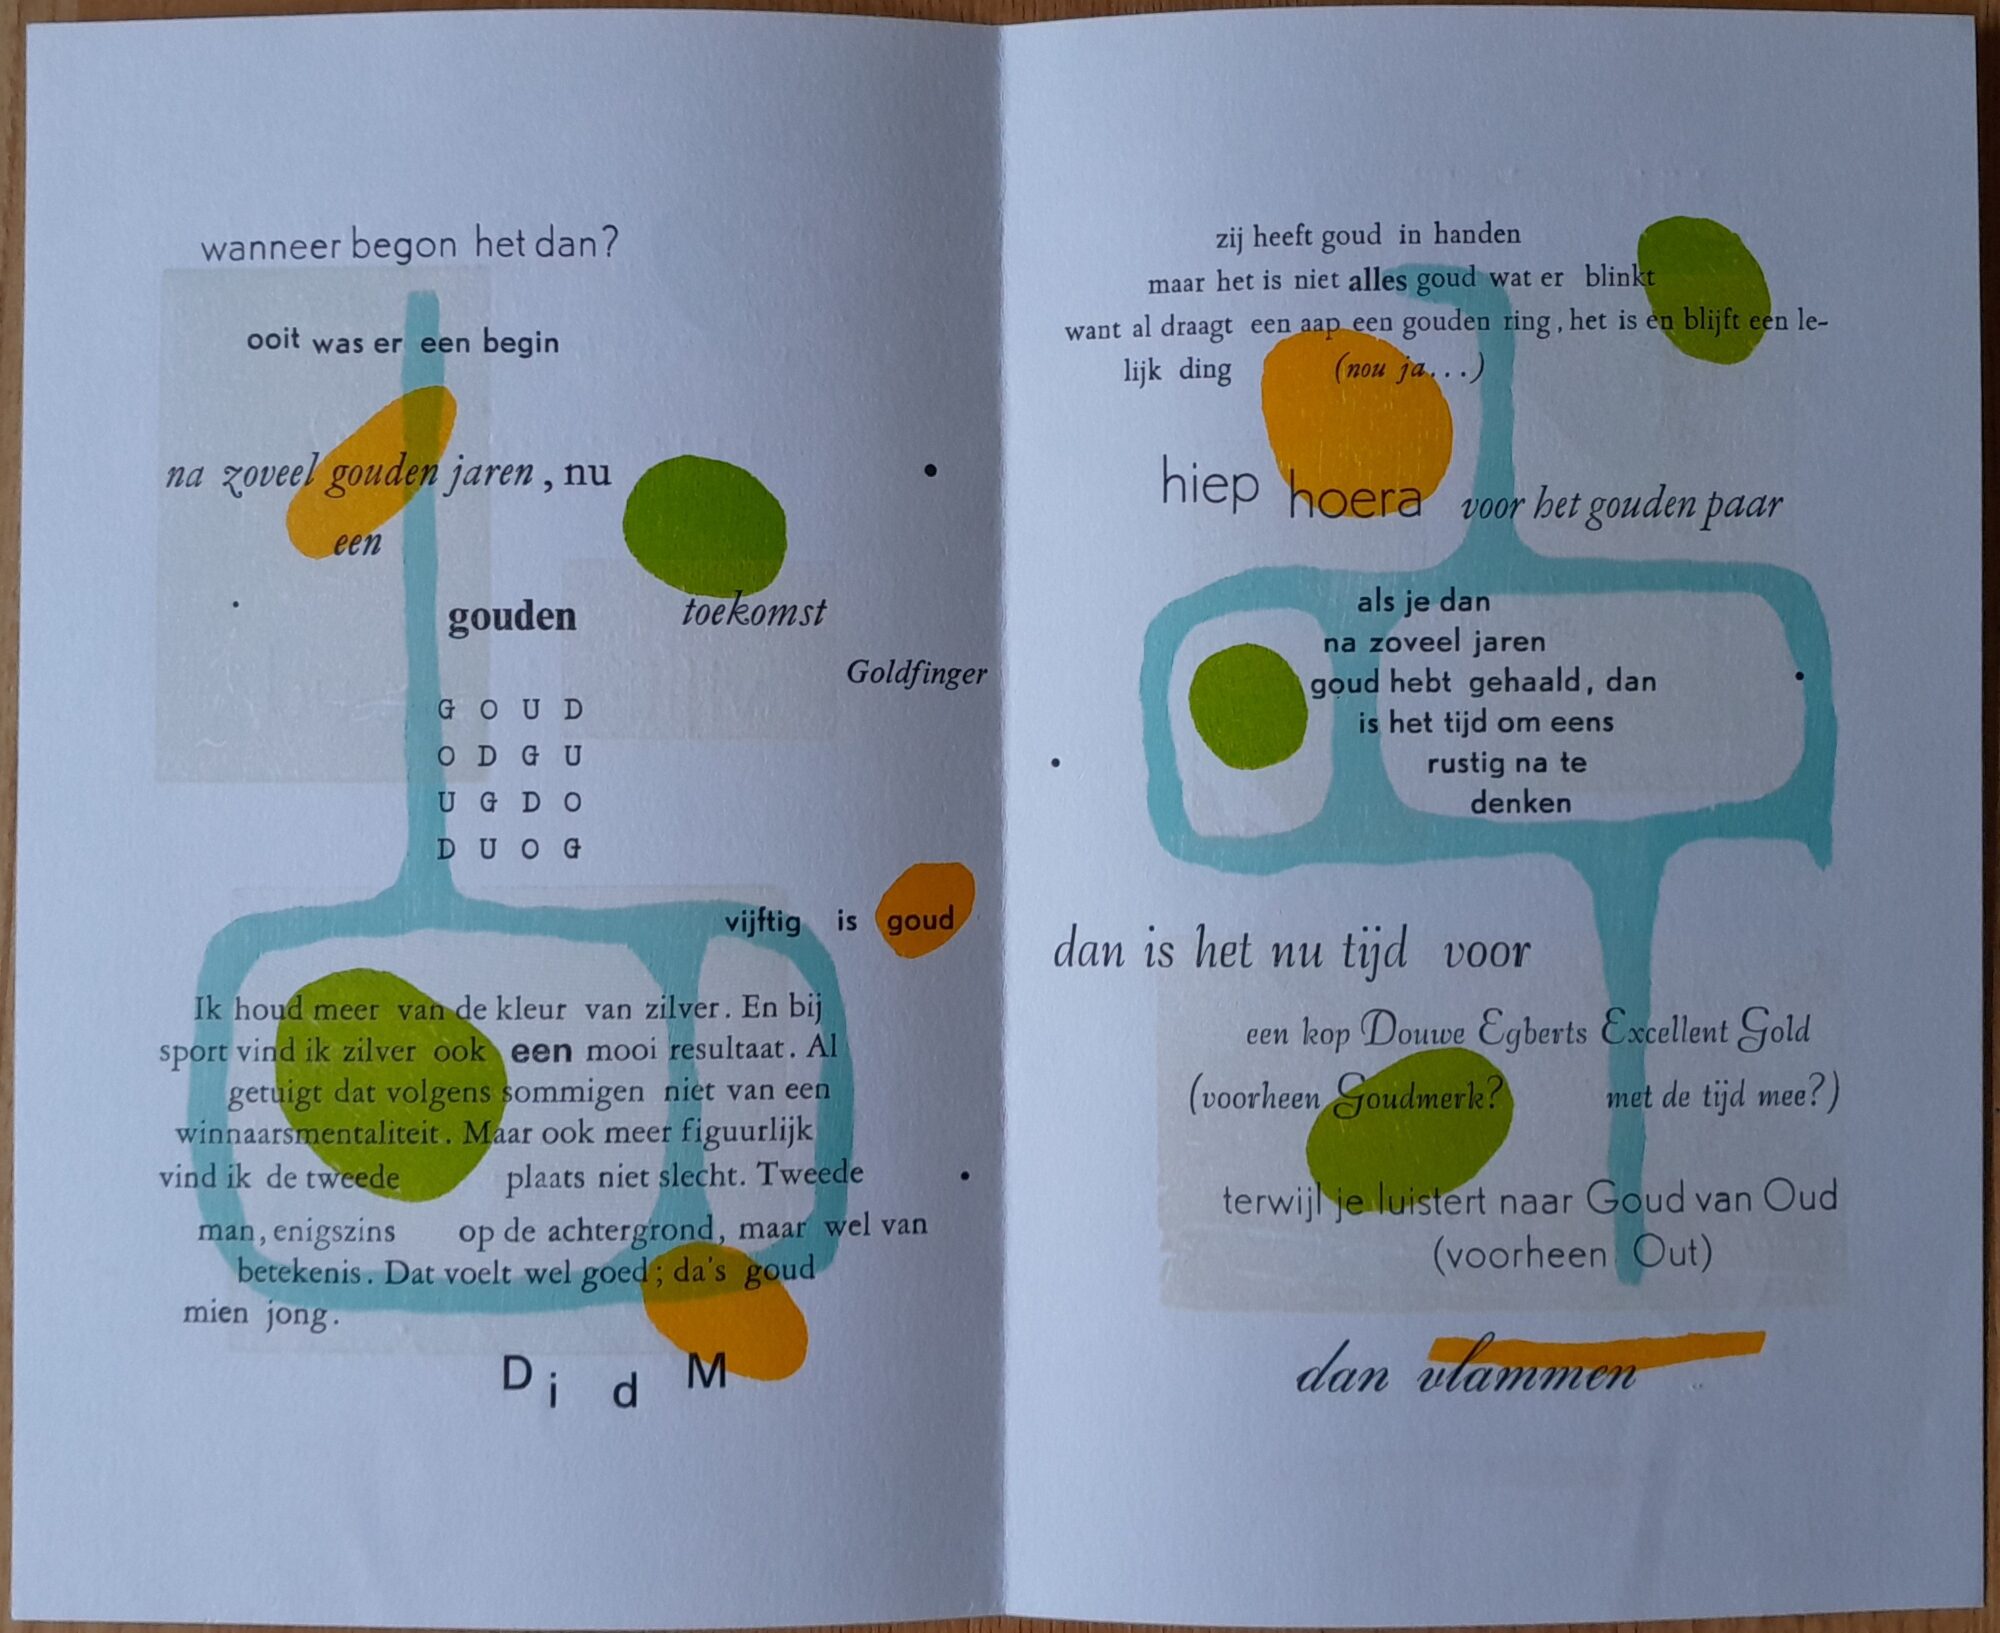 wanneer begon het dan?
ooit was er een begin
na zoveel gouden jaren, nu
een
gouden toekomst
Goldfinger
G O U D
O D G U
U G D O
D U O G
vijftig is goud
Ik houd meer van de kleur van zilver. En bij
sport vind ik zilver ook een mooi resultaat. Al
getuigt dat volgens sommigen niet van een
winnaarsmentaliteit. Maar ook meer figuurlijk
vind ik de tweede plaats niet slecht. Tweede
man, enigszins op de achtergrond, maar wel van
betekenis. Dat voelt wel goed; da's goud
mien jong.
D i d M
zij heeft goud in handen
maar het is niet alles goud wat er blinkt
want al draagt een aap een gouden ring, het is en blijft een le-
lijk ding (nou ja...)
hiep hoera voor het gouden paar
als je dan
na zoveel jaren
goud hebt gehaald, dan
is het tijd om eens
rustig na te
denken
dan is het nu tijd voor
een kop Douwe Egberts Excellent Gold
(voorheen Goudmerk? met de tijd mee?)
terwijl je luistert naar Goud van Oud
(voorheen Out)
dan vlammen